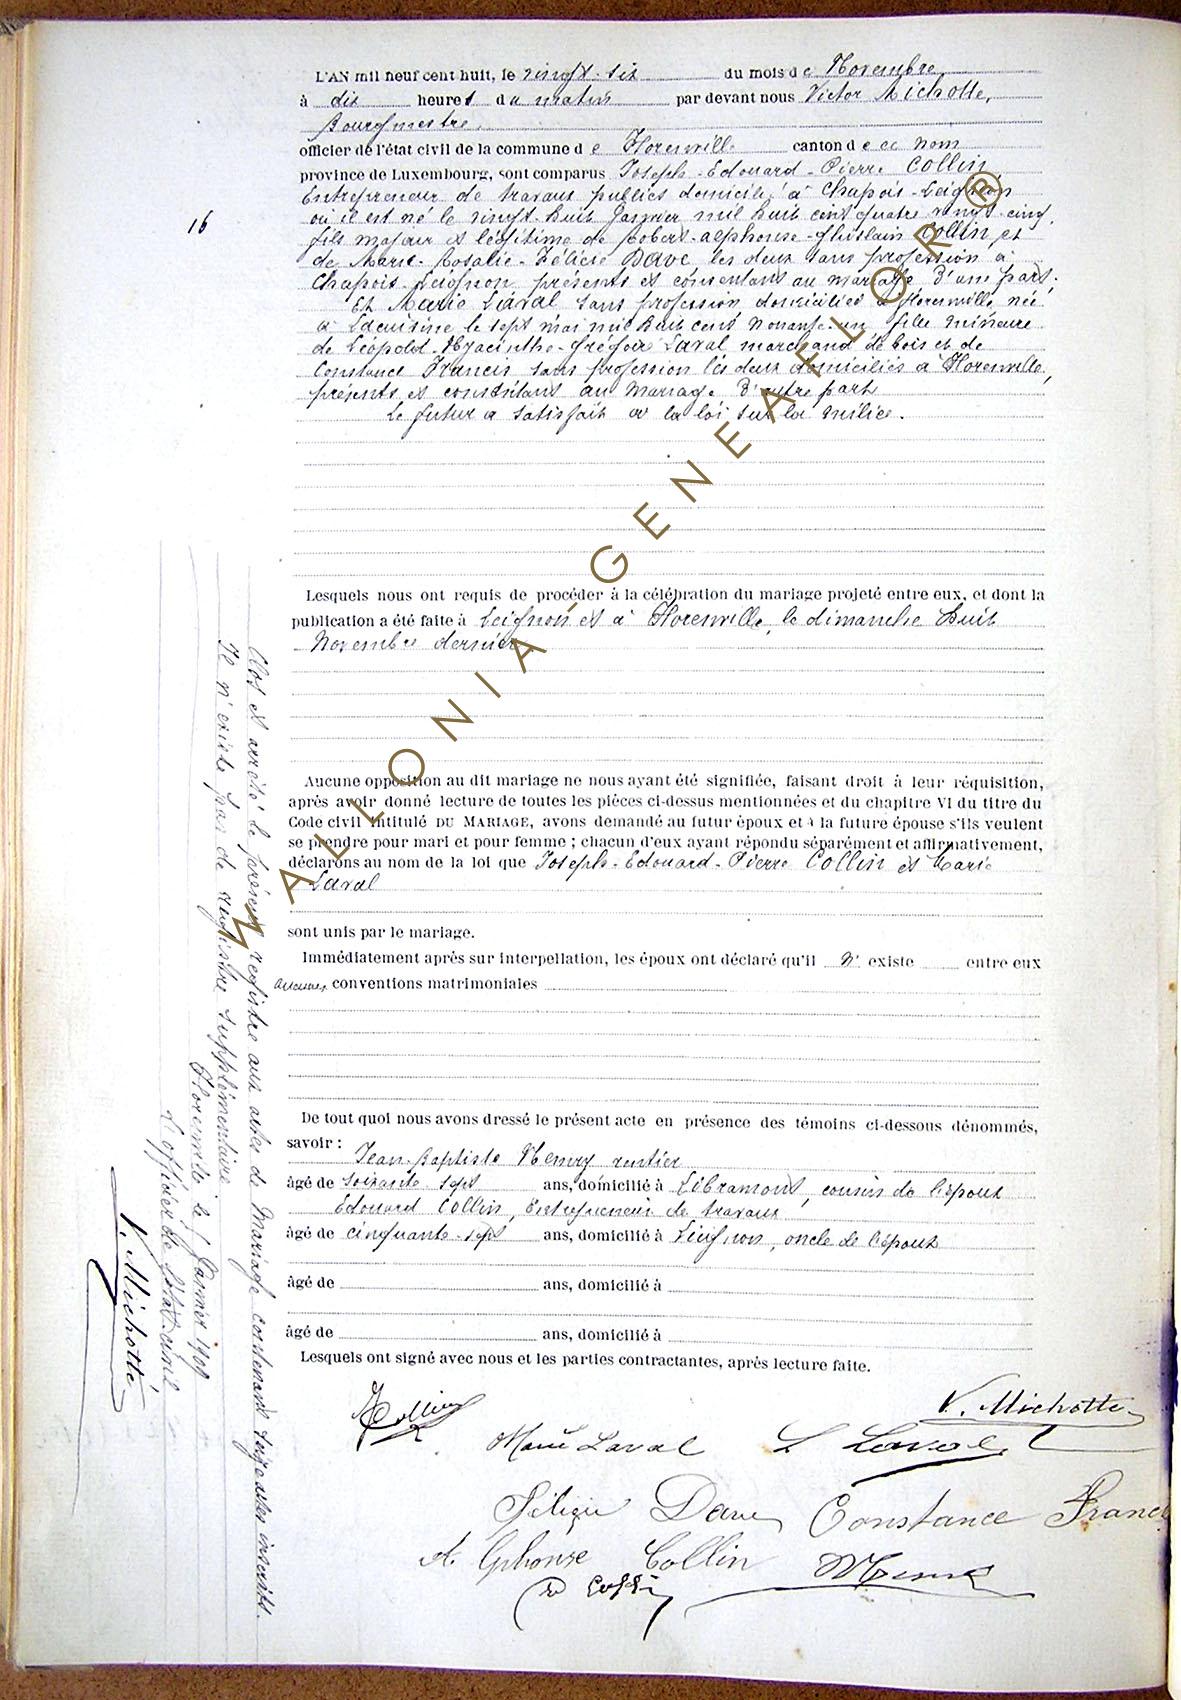 L'AN mil neuf cent huit, le vingt-six du mois de Novembre
à dix heures du matin par devant nous Victor Michotte,
Bourgmestre,
officier de l'état civil de la commune de Florenville canton de ce nom
province de Luxembourg, sont comparus Joseph-Edouard-Pierre Collin
Entrepreneur de travaux publics domicilié à Chapois-Leignon
où il est né le vingt-huit Janvier mil huit cent quatre vingt-cinq,
16
fils majeur et légitime de Robert-alphonse-Ghislain Collin et
de Marie-Rosalie-Félicie Dave les deux sans profession à
Chapois-Leignon présents et consentant au mariage D'une part.
Et Marie Laval sans profession domiciliée à Florenville, née
à Lacuisine le sept mai mil huit cent nonante-un fille mineure
de Léopold-Hyacinthe-Grégoir Laval marchand de bois et de
Constance Francis sans profession les deux domiciliés à Florenville,
présents et consentant au mariage D'autre part
Le futur a satisfait à la loi sur la milice.
Lesquels nous ont requis de procéder à la célébration du mariage projeté entre eux, et dont la
publication a été faite à Leignon et à Florenville, le dimanche huit
Novembre dernier
Aucune opposition au dit mariage ne nous ayant été signifiée, faisant droit à leur réquisition,
après avoir donné lecture de toutes les pièces ci-dessus mentionnées et du chapitre VI du titre du
Code civil intitulé DU MARIAGE, avons demandé au futur époux et à la future épouse s'ils veulent
se prendre pour mari et pour femme ; chacun d'eux ayant répondu séparément et affirmativement,
déclarons au nom de la loi que Joseph-Edouard-Pierre Collin et Marie
Laval
sont unis par le mariage.
Immédiatement après sur interpellation, les époux ont déclaré qu'il n' existe entre eux
aucunes conventions matrimoniales
De tout quoi nous avons dressé le présent acte en présence des témoins ci-dessous dénommés,
savoir :
Jean-Baptiste Henry rentier
âgé de soixante sept ans, domicilié à Libramont, cousin de l'époux
Edouard Collin, Entrepreneur de travaux
âgé de cinquante-sept ans, domicilié à Leignon, oncle de l'époux
âgé de ans, domicilié à
âgé de ans, domicilié à
Lesquels ont signé avec nous et les parties contractantes, après lecture faite.
Collin
V. Michotte
Marie Laval L Laval
Félicie Dave Constance Franc
A. Alphonse Collin Henry
Clos et arrêté le présent registre aux actes de Mariage contenant seize actes inscrits.
Il n'existe pas de registre supplémentaire
Florenville le 1 Janvier 1909
L'officier de l'état-civil
V. Michotte
WALLONIA-GENEAFLOR®